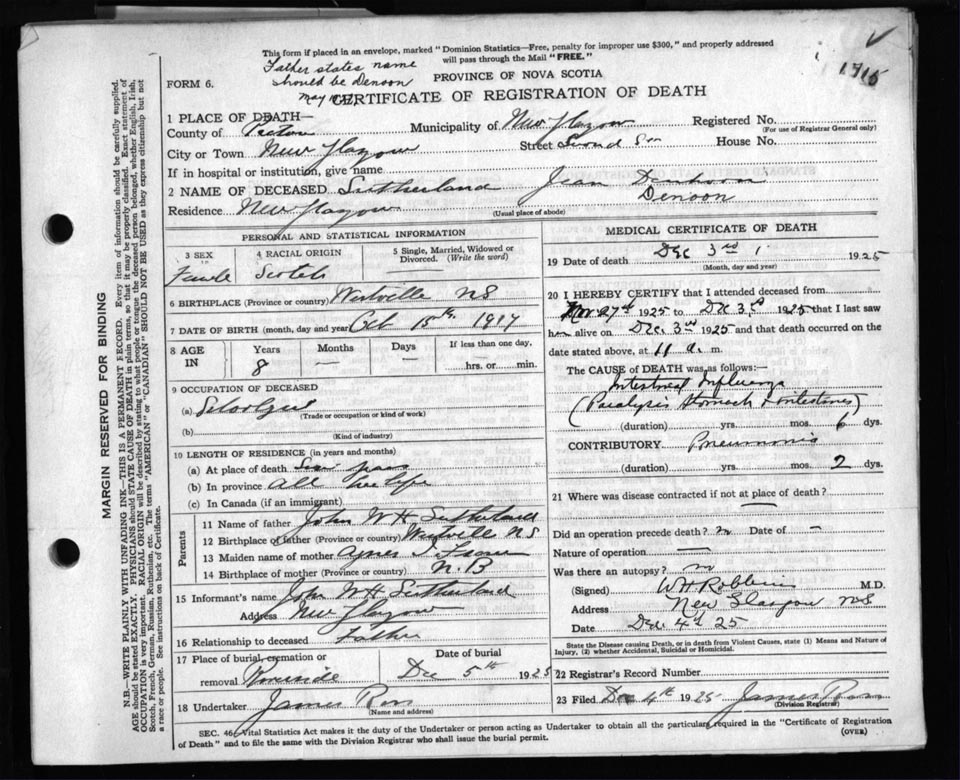 This form if placed in an envelope, marked "Dominion Statistics—Free, penalty for improper use $300," and properly addressed
will pass through the Mail "FREE."
Father states name
should be Denoon
FORM 6.
PROVINCE OF NOVA SCOTIA
1715
CERTIFICATE OF REGISTRATION OF DEATH
1 PLACE OF DEATH—
County of Pictou Municipality of New Glasgow Registered No.
(For use of Registrar General only)
City or Town New Glasgow Street Second St House No.
If in hospital or institution, give name
2 NAME OF DECEASED Sutherland Jean Denhoon
Denoon
Residence New Glasgow (Usual place of abode)
PERSONAL AND STATISTICAL INFORMATION
3 SEX 4 RACIAL ORIGIN 5 Single, Married, Widowed or Divorced. (Write the word)
Female Scotch —
6 BIRTHPLACE (Province or country) Westville NS
7 DATE OF BIRTH (month, day and year) Oct 15th, 1917
8 AGE IN Years Months Days If less than one day,
8 — — hrs. or min.
9 OCCUPATION OF DECEASED
(a) (Trade or occupation or kind of work)
(b) (Kind of industry)
10 LENGTH OF RESIDENCE (in years and months)
(a) At place of death
(b) In province all her life
(c) In Canada (if an immigrant)
Parents
11 Name of father John W H Sutherland
12 Birthplace of father (Province or country) Westville NS
13 Maiden name of mother Agnes
14 Birthplace of mother (Province or country) N.B
15 Informant's name John W H Sutherland
Address New Glasgow
16 Relationship to deceased Father
17 Place of burial, cremation or removal Date of burial
Dec 5th 1925
18 Undertaker James Ross
(Name and address)
MEDICAL CERTIFICATE OF DEATH
19 Date of death Dec 3rd 1925
(Month, day and year)
20 I HEREBY CERTIFY that I attended deceased from
Nov 27th 1925 to Dec 3rd 1925 that I last saw
her alive on Dec. 3rd 1925 and that death occurred on the
date stated above, at 11 a. m.
The CAUSE of DEATH was as follows:—
Intestinal Influenza
(Paralysis Stomach & intestines)
(duration) yrs. mos. 6 dys.
CONTRIBUTORY Pneumonia
(duration) yrs. mos. 2 dys.
21 Where was disease contracted if not at place of death?
Did an operation precede death? no Date of —
Nature of operation —
Was there an autopsy? no
(Signed) W H Robbins M.D.
Address New Glasgow NS
Date Dec 4th 25
State the Disease causing Death, or in death from Violent Causes, state (1) Means and Nature of
Injury, (2) whether Accidental, Suicidal or Homicidal.
22 Registrar's Record Number
23 Filed Dec 4th 1925 James Ross
(Division Registrar)
SEC. 46, Vital Statistics Act makes it the duty of the Undertaker or person acting as Undertaker to obtain all the particulars required in the "Certificate of Registration
of Death" and to file the same with the Division Registrar who shall issue the burial permit.
(OVER)
MARGIN RESERVED FOR BINDING
N.B.—WRITE PLAINLY WITH UNFADING INK—THIS IS A PERMANENT RECORD. Every item of information should be carefully supplied.
AGE should be stated EXACTLY. PHYSICIANS should STATE CAUSE OF DEATH in plain terms, so that it may be properly classified. Exact statement of
OCCUPATION is very important. RACIAL ORIGIN will be described by stating to what people or tongue the deceased person belonged, whether English, Irish,
Scotch, French, German, Russian, Ruthenian, etc. The terms "AMERICAN" or "CANADIAN" SHOULD NOT BE USED as they express citizenship but not
a race or people. See instructions on back of Certificate.